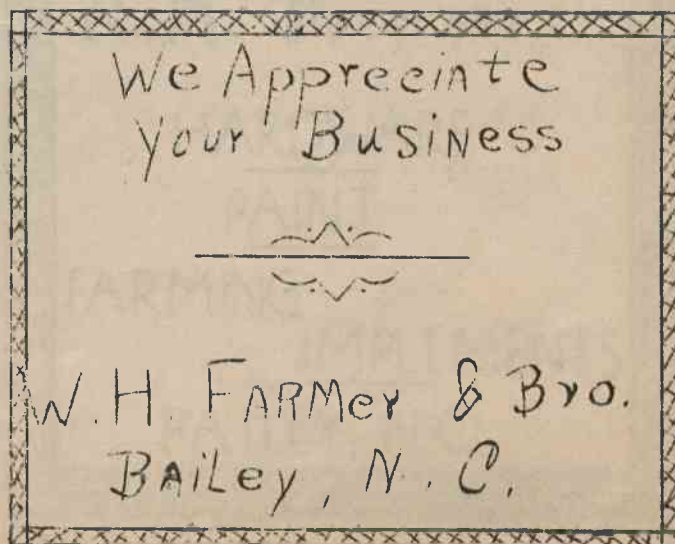 We Appreciate
your Business
W. H. FARMer & Bro.
BAiLey, N. C.